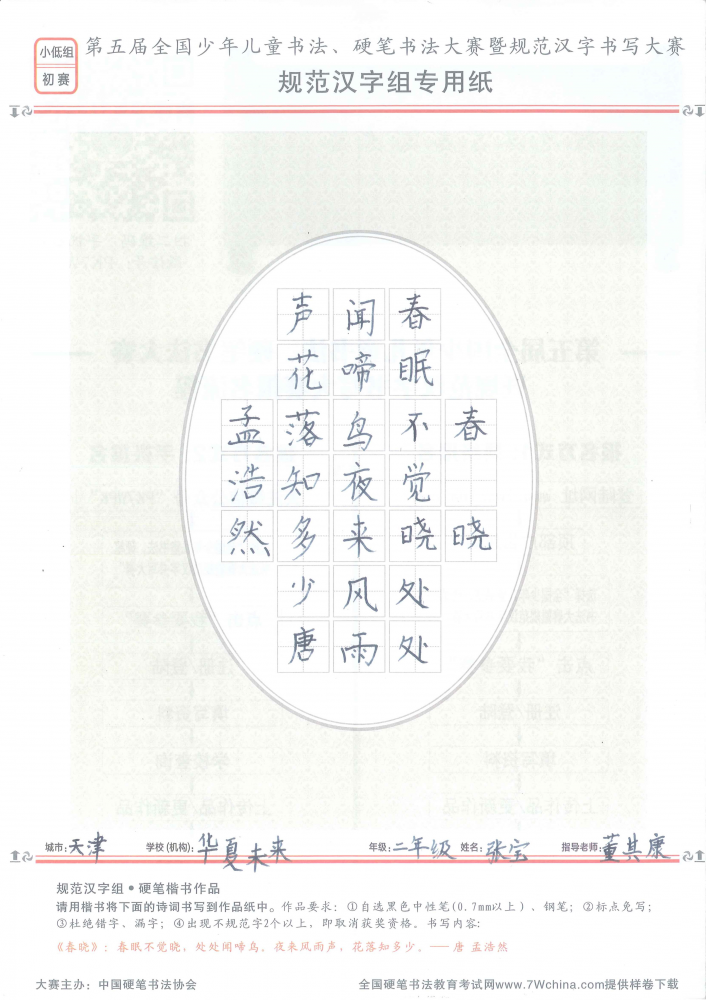 小低组
初赛
第五届全国少年儿童书法、硬笔书法大赛暨规范汉字书写大赛
规范汉字组专用纸
春晓
春眠不觉晓处处
闻啼鸟夜来风雨
声花落知多少唐
孟浩然
城市:天津 学校(机构):华夏未来 年级:二年级 姓名:张宝 指导老师:董其康
规范汉字组•硬笔楷书作品
请用楷书将下面的诗词书写到作品纸中。作品要求：①自选黑色中性笔(0.7mm以上)、钢笔；②标点免写；
③杜绝错字、漏字；④出现不规范字2个以上，即取消获奖资格。书写内容:
《春晓》：春眠不觉晓，处处闻啼鸟。夜来风雨声，花落知多少。—— 唐 孟浩然
大赛主办：中国硬笔书法协会 全国硬笔书法教育考试网www.7Wchina.com提供样卷下载